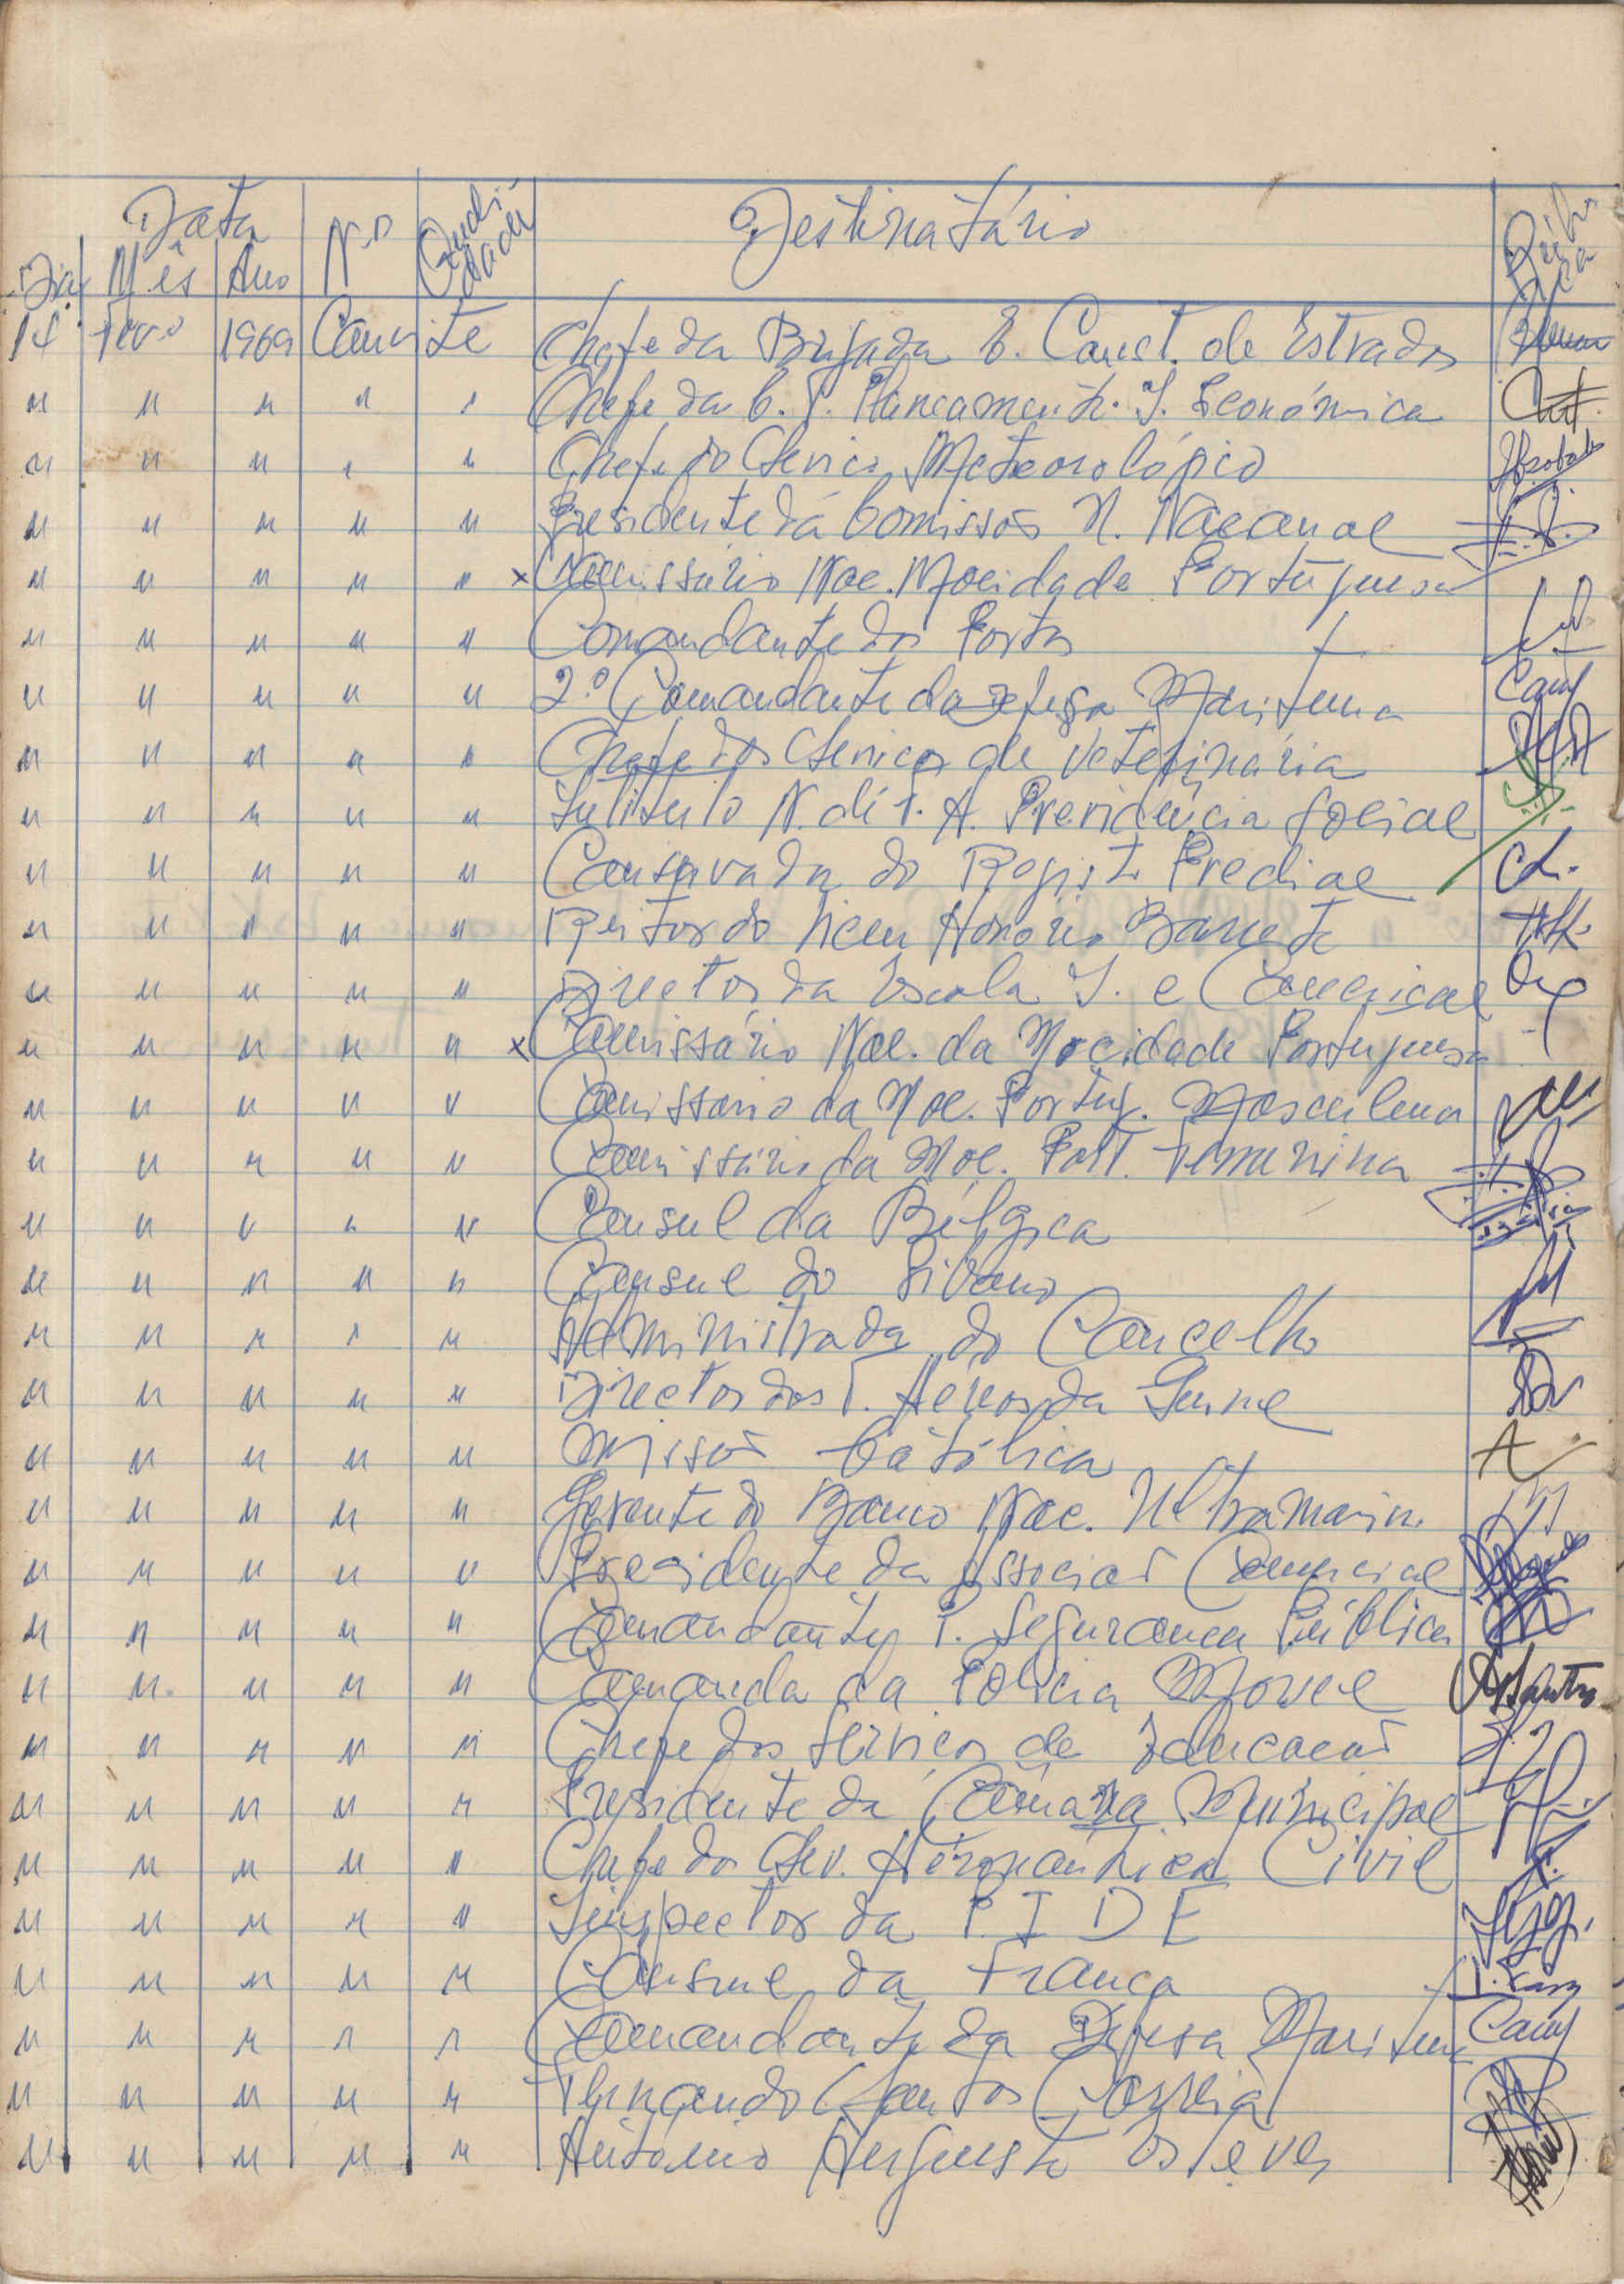 Data Nº Destinatário
Dia Mês Ano
14 Fevº 1969 Convite Chefe da Brigada E. Const. de Estradas
" " " " " Chefe da C. P. Planeamento I. Económica
" " " " " Chefe do Serviço Meteorológico
" " " " " Presidente da Comissão N. Nacional
" " " " " x Comissário Nac. Mocidade Portuguesa
" " " " " Comandante dos Portos
" " " " " 2º Comandante da Defesa Maritima
" " " " " Chefe dos Serviços de Veterinária
" " " " " Instituto N. de T. A. Previdência Social
" " " " " Conservador do Registo Predial
" " " " " Reitor do Liceu Honório Barreto
" " " " " Director da Escola I. e Comercial
" " " " " x Comissário Nac. da Mocidade Portuguesa
" " " " " Comissário da Moc. Portug. Masculina
" " " " " Comissário da Moc. Port. Feminina
" " " " " Consul da Bélgica
" " " " " Consul do Libano
" " " " " Administrador do Concelho
" " " " " Director dos T. Aéreos da Guiné
" " " " " Missão Católica
" " " " " Gerente do Banco Nac. Ultramarino
" " " " " Presidente da Associaã Comercial
" " " " " Comandante P. Segurança Pública
" " " " " Comanda da Policia Movel
" " " " " Chefe dos Serviços de Educacaõ
" " " " " Presidente da Câmara Municipal
" " " " " Chefe do Serv. Aéronáutica Civil
" " " " " Inspector da P I D E
" " " " " Consul da França
" " " " " Comandante da Defesa Maritima
" " " " " Fernando Santos Correia
" " " " " António Augusto Esteves